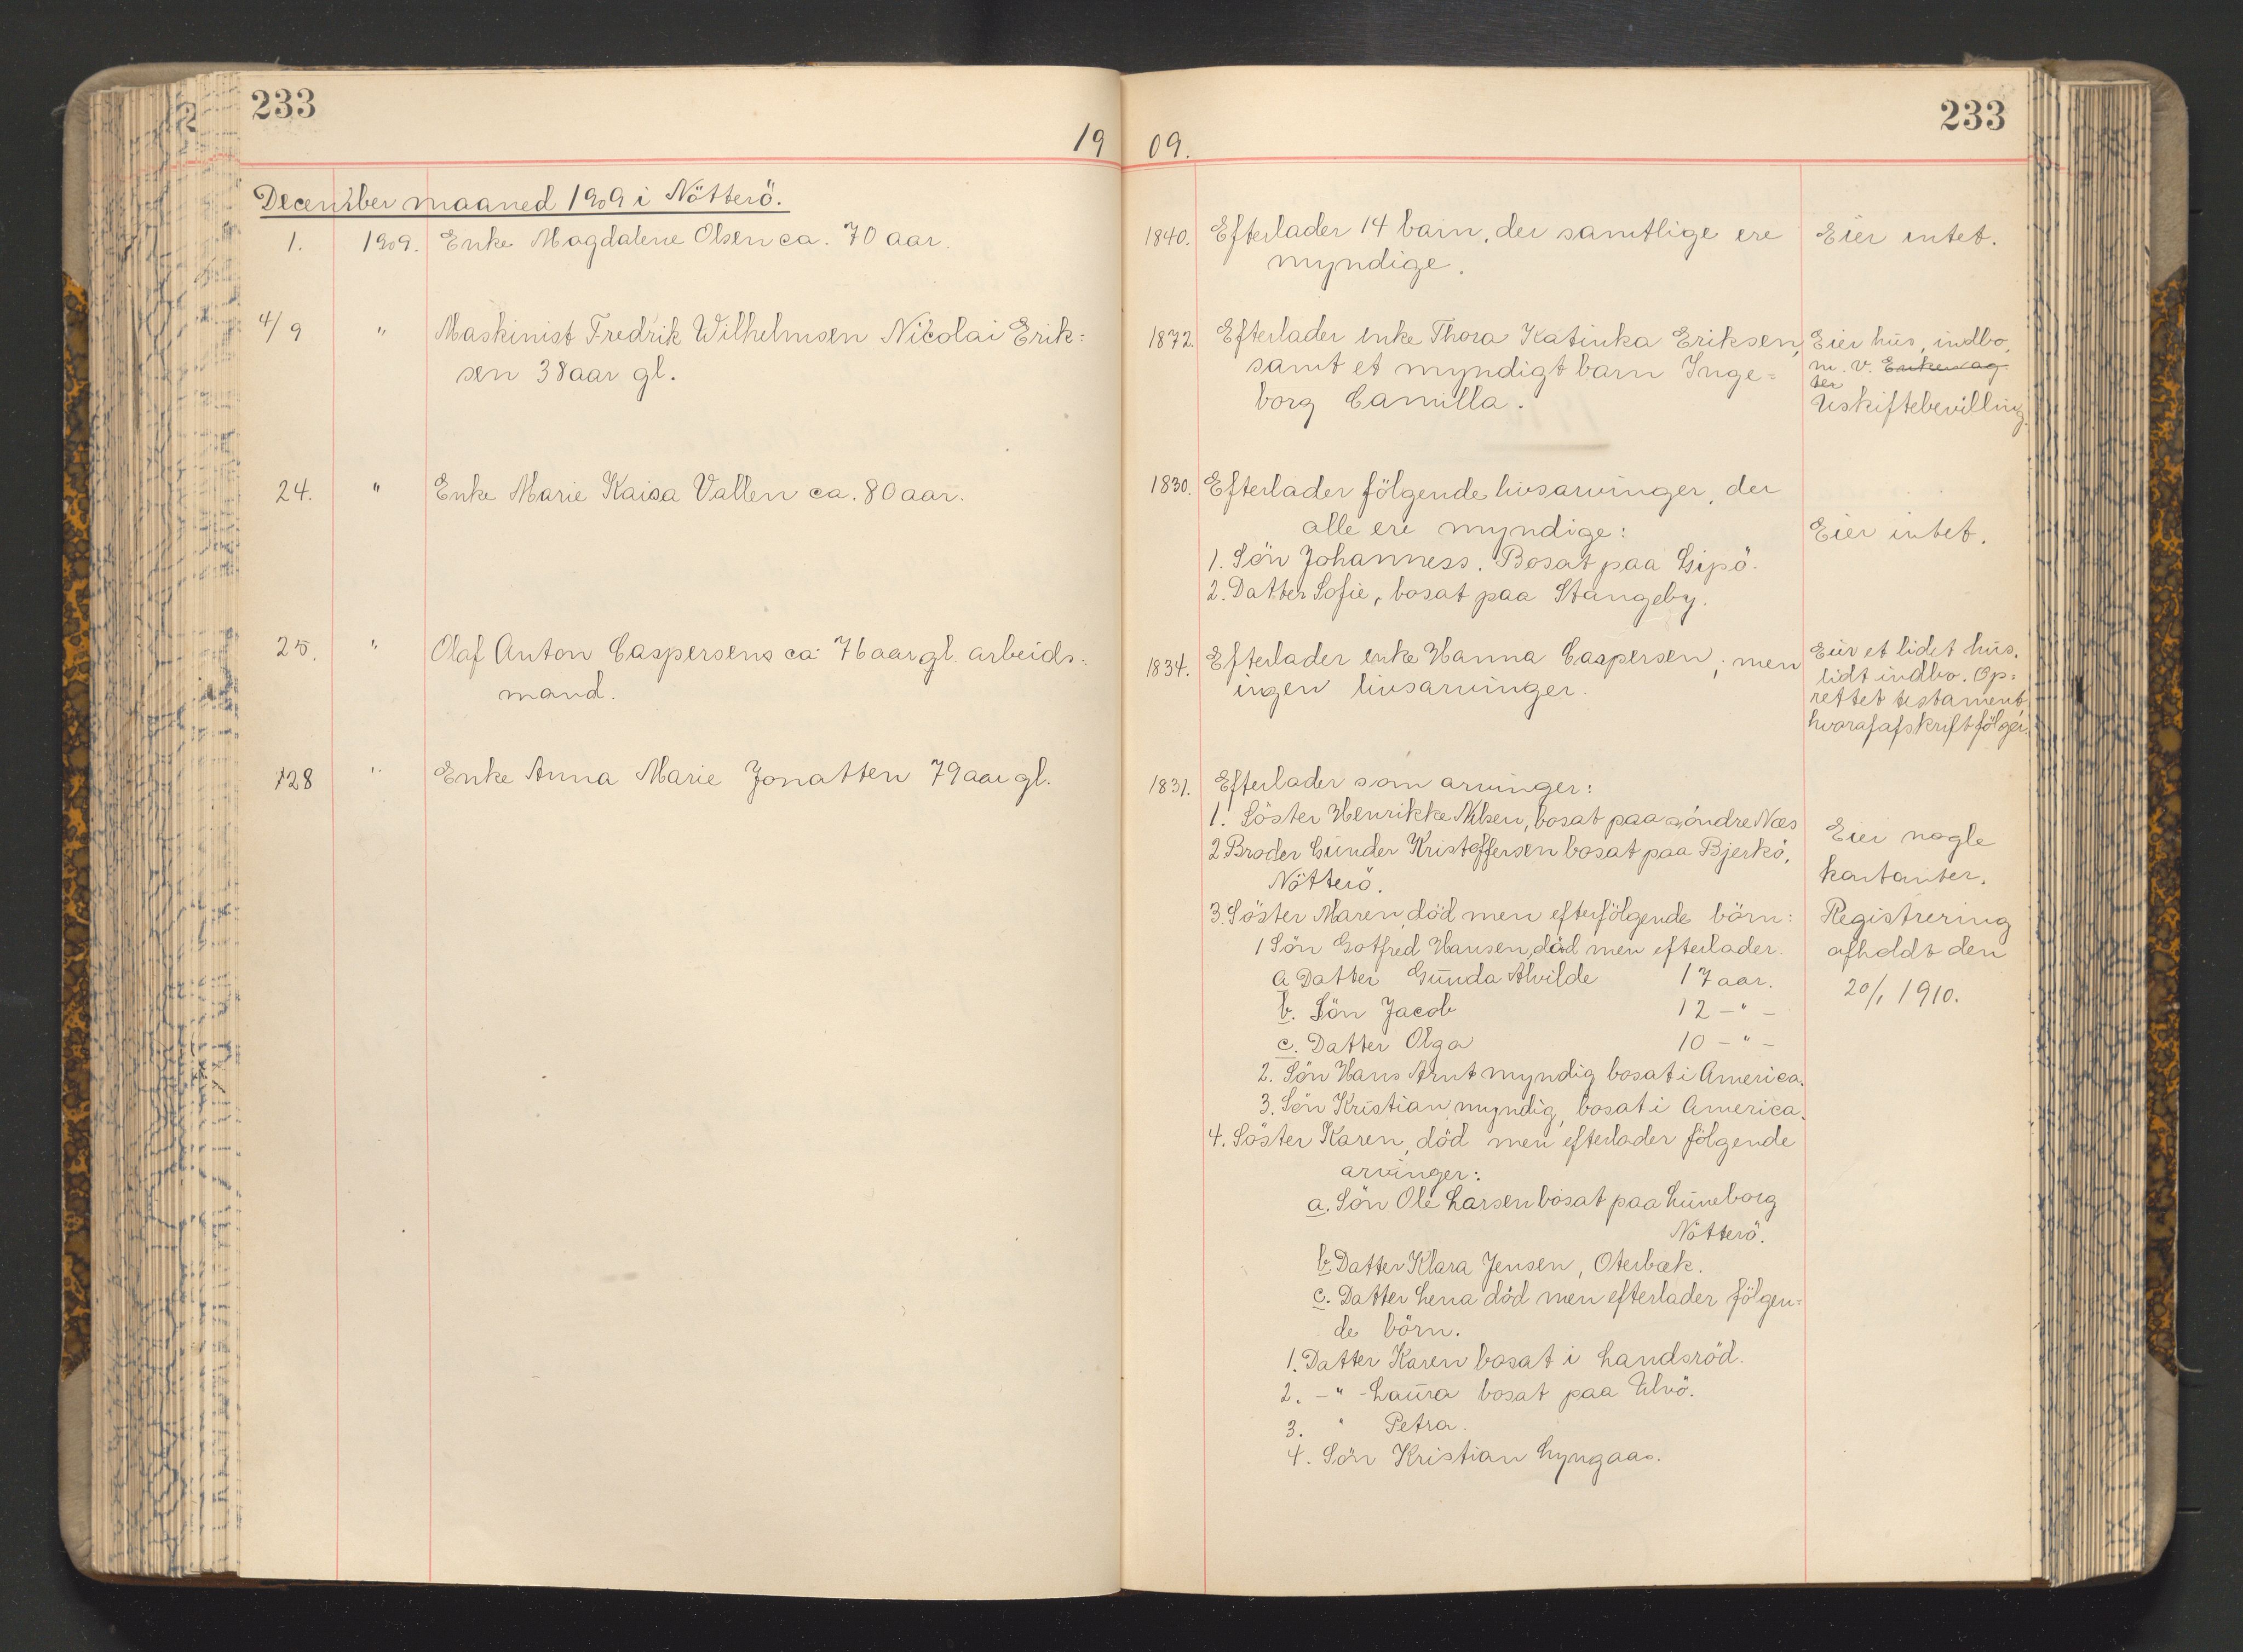 233
19 09.
233
December maaned 1909 i Nötterö.
1. 1909. Enke Magdalene Olsen ca. 70 aar.
1840. Efterlader 14 barn, der samtlige ere
myndige.
Eier intet.
4/9 " Maskinist Fredrik Wilhelmsen Nicolai Erik=
sen 38 aar gl.
1872. Efterlader enke Thora Katinka Eriksen,
samt et myndigt barn Inge=
borg Camilla.
Eier hus, indbo,
m. v.
Uskiftebevilling.
24. " Enke Marie Kaisa Vallen ca. 80 aar.
1830. Efterlader fölgende livsarvinger, der
alle ere myndige:
1. Sön Johanness. Bosat paa Gipö.
2. Datter Sofie, bosat paa Stangeby.
Eier intet.
25. " Olaf Anton Caspersens ca. 76 aar gl. arbeids=
mand.
1834. Efterlader enke Hanna Caspersen, men
ingen livsarvinger.
Eier et lidet hus,
lidt indbo. Op=
rettet testament,
hvoraf afskrift fölger.
28 " Enke Anna Marie Jonatten 79 aar gl.
1831. Efterlader som arvinger:
1. Söster Henrikke Nilsen, bosat paa söndre Næs
2 Broder Gunder Kristoffersen bosat paa Bjerkö,
Nötterö.
3. Söster Maren, död men efterfölgende börn:
1 Sön Gotfred Hansen, död men efterlader.
a Datter Gunda Alvilde 17 aar.
b. Sön Jacob 12 - " -
c. Datter Olga 10 - " -
2. Sön Hans Arnt myndig bosat i America.
3. Sön Kristian myndig, bosat i America.
4. Söster Karen, död men efterlader fölgende
arvinger:
a. Sön Ole Larsen bosat paa Luneborg
Nötterö.
b. Datter Klara Jensen, Oterbæk.
c. Datter Lena död men efterlader fölgen=
de börn.
1. Datter Karen bosat i Landsröd.
2. - " - Laura bosat paa Ulvö.
3. " Petra.
4. Sön Kristian Lyngaas.
Eier nogle
kontanter.
Registrering
afholdt den
20/1 1910.